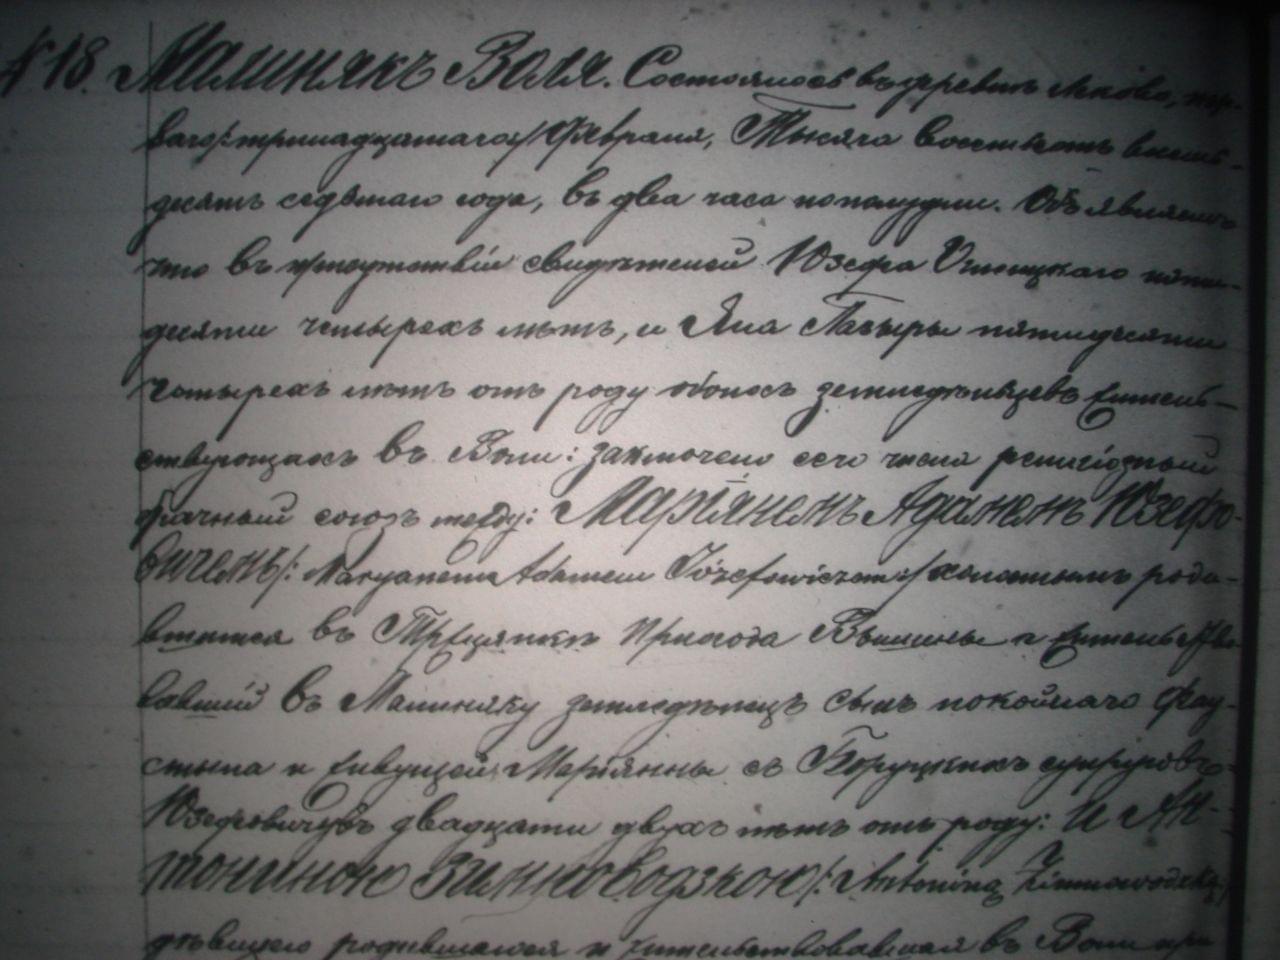 № 18. Малинякъ Воля. Состоялось въ деревнѣ Лково, пер-
ваго /:тринадцатаго:/ Февраля, Тысяча восемьсотъ шесть-
десятъ седьмаго года, въ два часа пополудни. Объявляемъ
что въ присутствіи свидѣтелей Юзефа пяти-
десяти четырехъ лѣтъ, и Яна пятидесяти
четырехъ лѣтъ отъ роду обоихъ земледѣльцевъ житель-
ствующихъ въ Воли: заключено сего числа религіозный
брачный союзъ между: Маріяномъ Адамомъ Юзефо-
вичемъ /: Maryanem Adamem Józefowiczem :/ холостымъ родив-
шимся въ прихода и жительство-
вавшій въ Малиняку земледѣлецъ сынъ покойнаго Фау-
стына и живущей Маріянны съ супруговъ
Юзефовичувъ двадцати двухъ лѣтъ отъ роду: И Ан-
тониною Зимноводзкою /: Antoniną Zimnowodzką :/
дѣвицею родившаяся и жительствовавшая въ Воли при